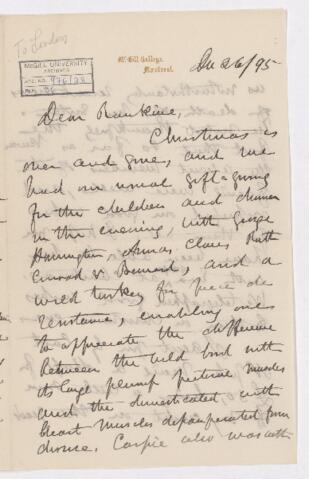 To London
McGILL UNIVERSITY
ARCHIVES
ACC. NO. 976/22
REF.
McGill College,
Montreal.
Dec 26/95
Dear Rankine,
Christmas is
over and gone, and we
had our usual gift-giving
for the children and dinner
in the evening, with George
Harrington, Clare, Ruth
Conrad & Bernard, and a
wild turkey for pièce de
resistance, enabling one
to appreciate the difference
between the wild bird with
its large plump pectoral muscles
and the domesticated with
breast muscles depauperated from
disuse. also was with